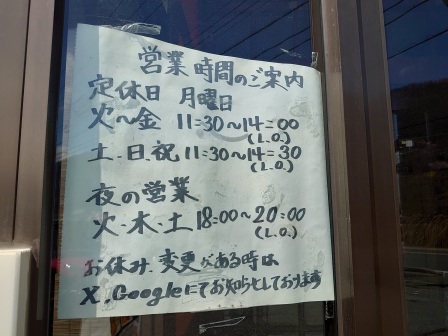 営業時間のご案内
定休日 月曜日
火～金 11:30～14:00
(L.O.)
土.日.祝 11:30～14:30
(L.O.)
夜の営業
火.木.土 18:00～20:00
(L.O.)
お休み.変更がある時は
X.Googleにてお知らせしております